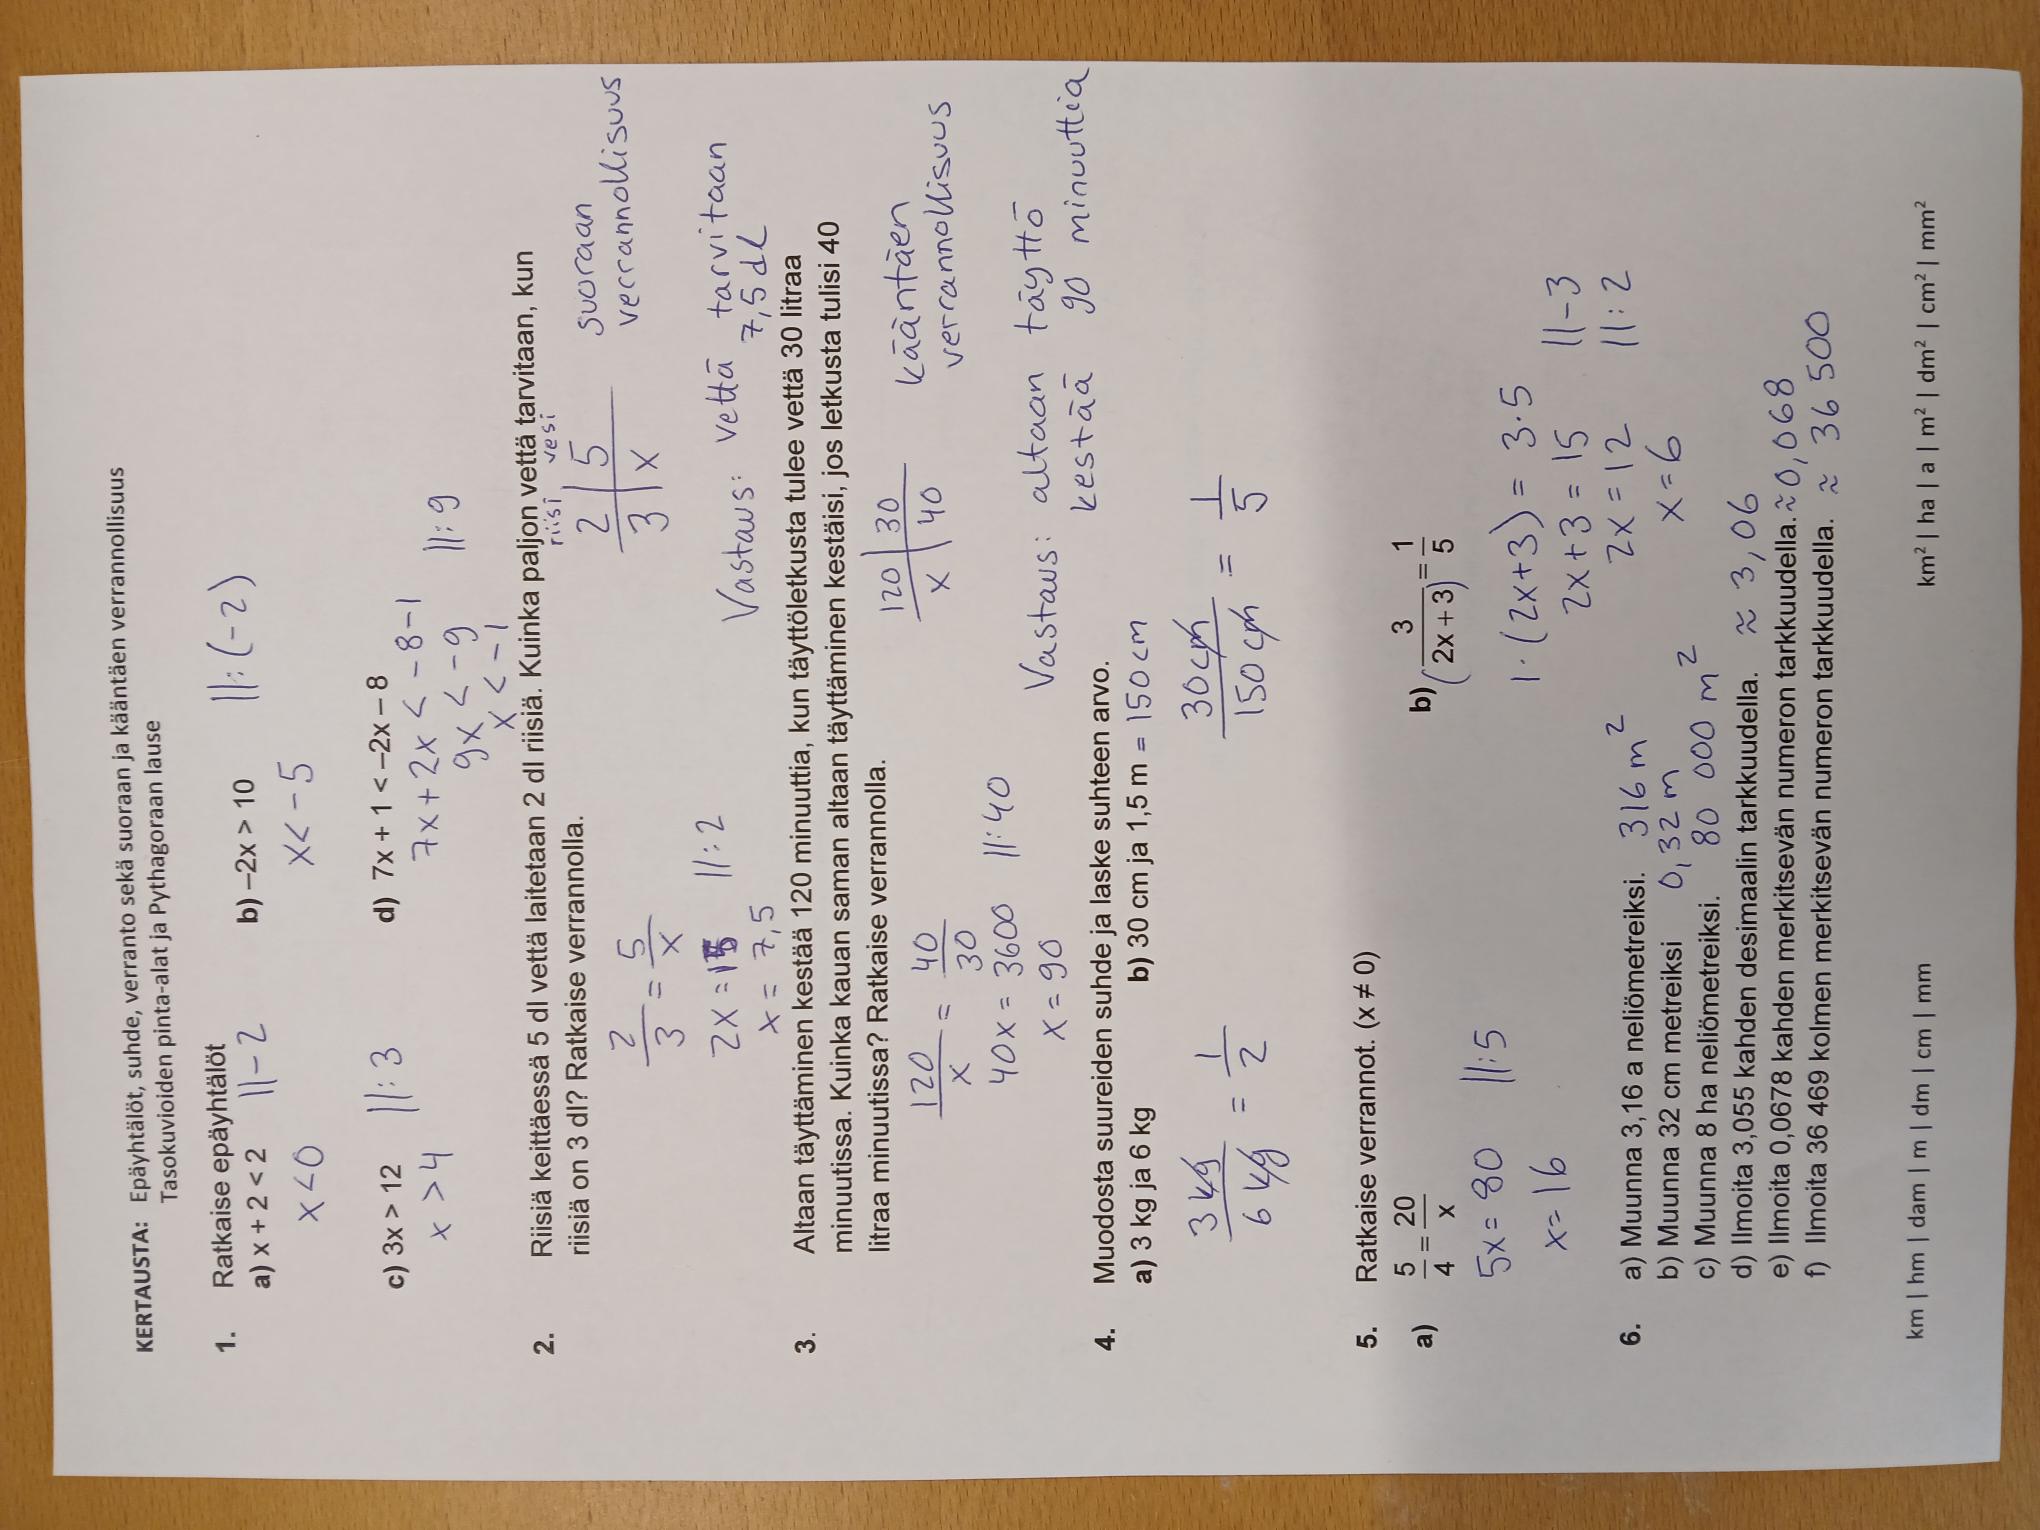 KERTAUSTA: Epäyhtälöt, suhde, verranto sekä suoraan ja kääntäen verrannollisuus
Tasokuvioiden pinta-alat ja Pythagoraan lause
1. Ratkaise epäyhtälöt
a) x + 2 < 2 ||-2 b) –2x > 10 ||:(-2)
x<0 x<-5
c) 3x > 12 ||:3 d) 7x + 1 < –2x – 8
x>4 7x+2x<-8-1
9x<-9 ||:9
x<-1
2. Riisiä keittäessä 5 dl vettä laitetaan 2 dl riisiä. Kuinka paljon vettä tarvitaan, kun
riisiä on 3 dl? Ratkaise verrannolla.
riisi vesi
2 | 5 suoraan
3 | x verrannollisuus
2/3 = 5/x
2x = 15 ||:2 Vastaus: vettä tarvitaan
x = 7,5 7,5 dl
3. Altaan täyttäminen kestää 120 minuuttia, kun täyttöletkusta tulee vettä 30 litraa
minuutissa. Kuinka kauan saman altaan täyttäminen kestäisi, jos letkusta tulisi 40
litraa minuutissa? Ratkaise verrannolla.
120 | 30 kääntäen
x | 40 verrannollisuus
120/x = 40/30
40x = 3600 ||:40 Vastaus: altaan täyttö
x = 90 kestää 90 minuuttia
4. Muodosta suureiden suhde ja laske suhteen arvo.
a) 3 kg ja 6 kg b) 30 cm ja 1,5 m = 150 cm
3 kg/6 kg = 1/2 30 cm/150 cm = 1/5
5. Ratkaise verrannot. (x ≠ 0)
a) 5/4 = 20/x b) 3/(2x + 3) = 1/5
5x = 80 ||:5 1·(2x+3) = 3·5
x = 16 2x+3 = 15 ||-3
2x = 12 ||:2
x = 6
6. a) Muunna 3,16 a neliömetreiksi. 316 m²
b) Muunna 32 cm metreiksi 0,32 m
c) Muunna 8 ha neliömetreiksi. 80 000 m²
d) Ilmoita 3,055 kahden desimaalin tarkkuudella. ≈ 3,06
e) Ilmoita 0,0678 kahden merkitsevän numeron tarkkuudella. ≈0,068
f) Ilmoita 36 469 kolmen merkitsevän numeron tarkkuudella. ≈ 36 500
km | hm | dam | m | dm | cm | mm km² | ha | a | m² | dm² | cm² | mm²